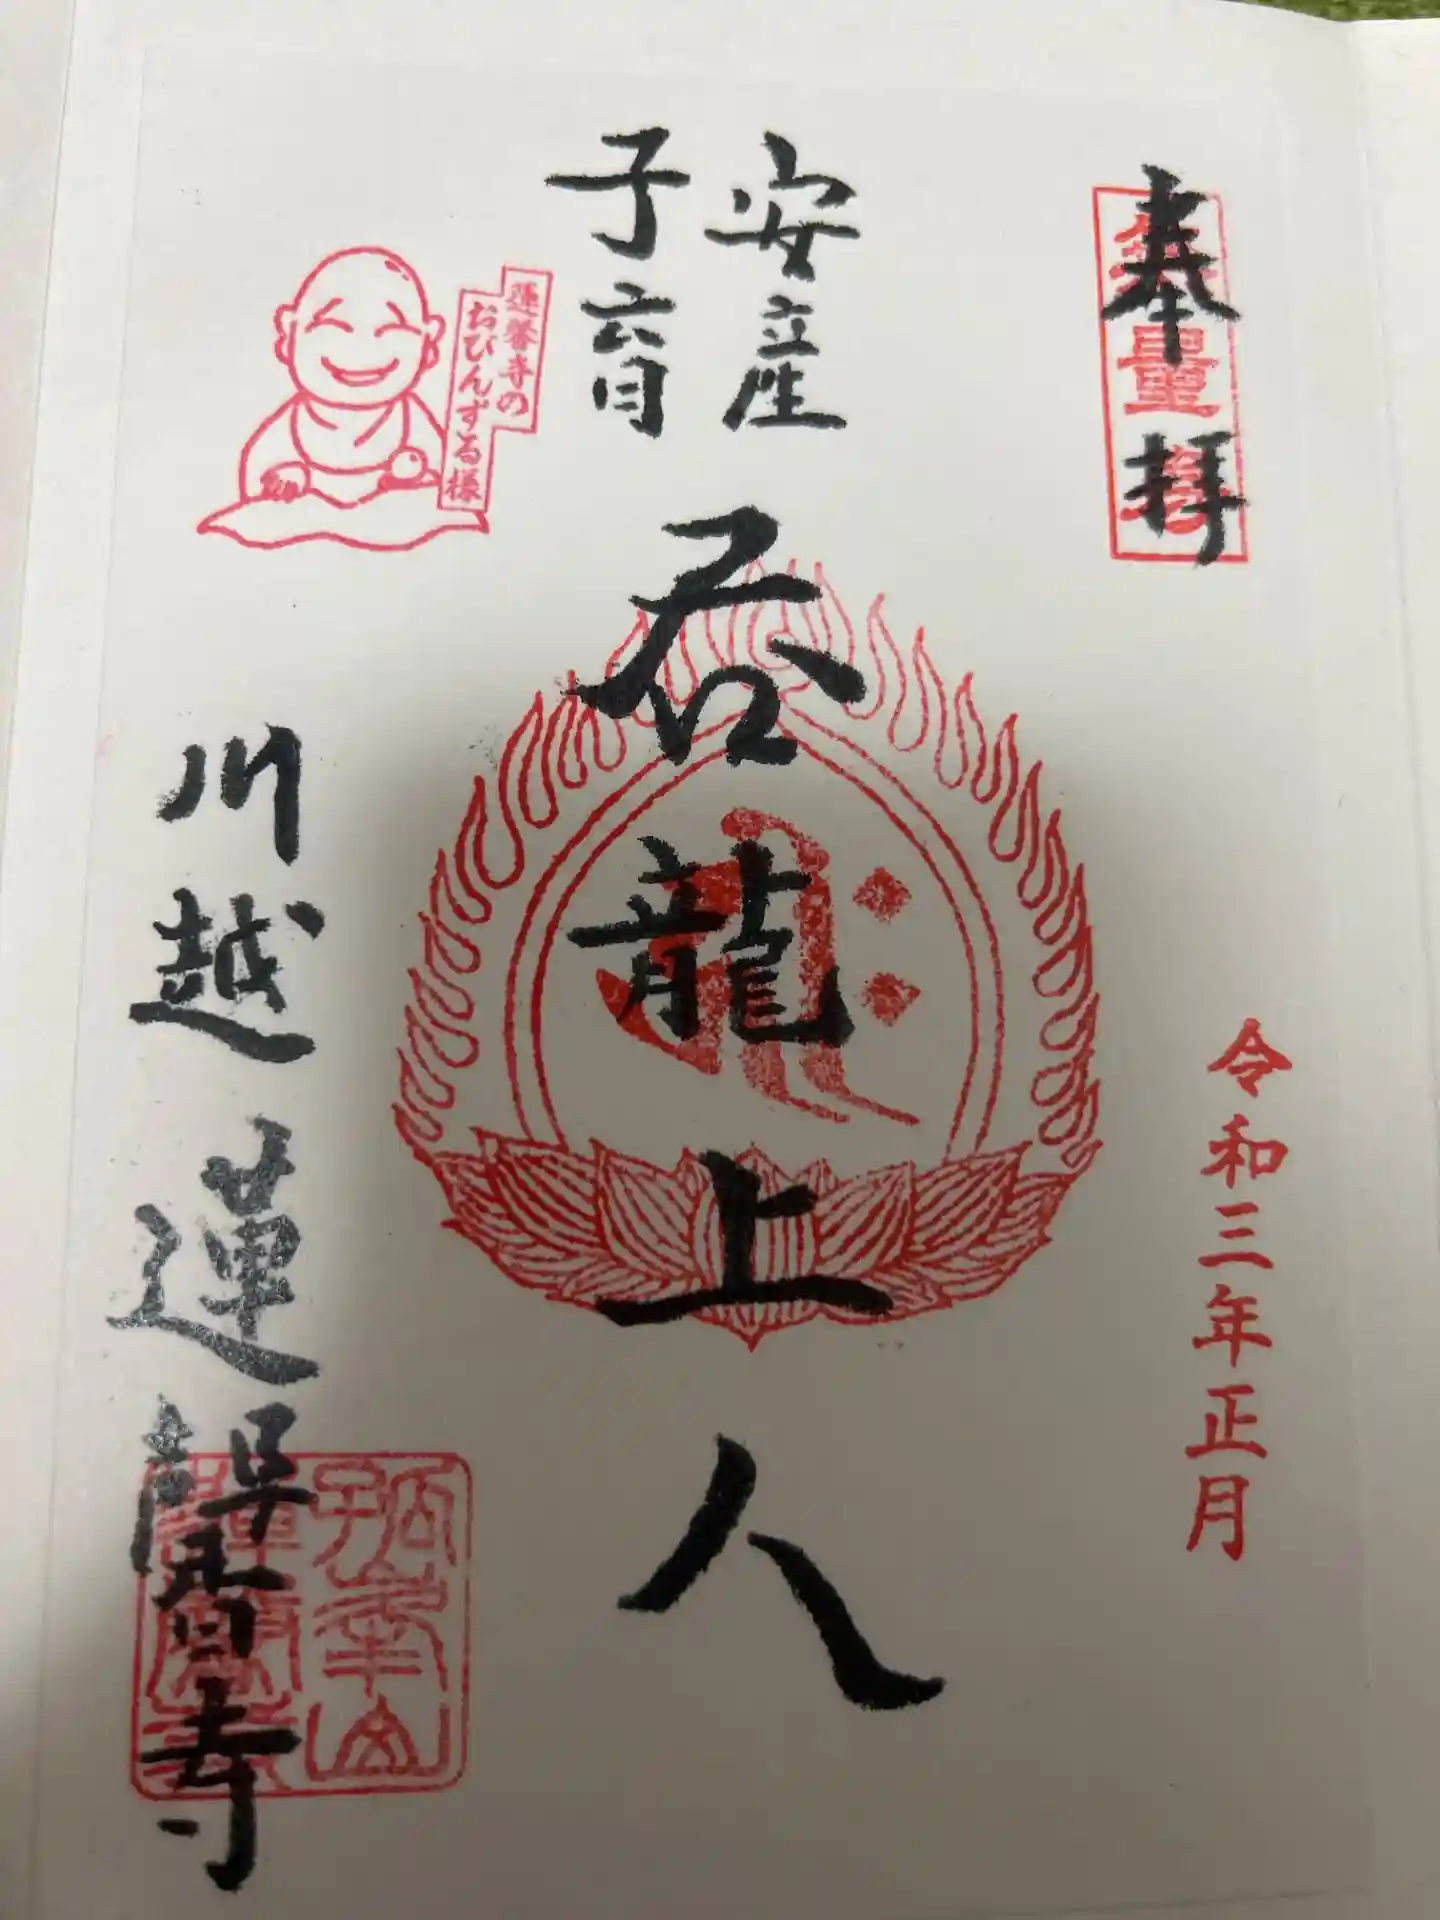 奉拝
令和三年正月
安産
子育
呑龍上人
蓮馨寺の
おびんずる様
川越 蓮馨寺
孤峯山
蓮馨寺